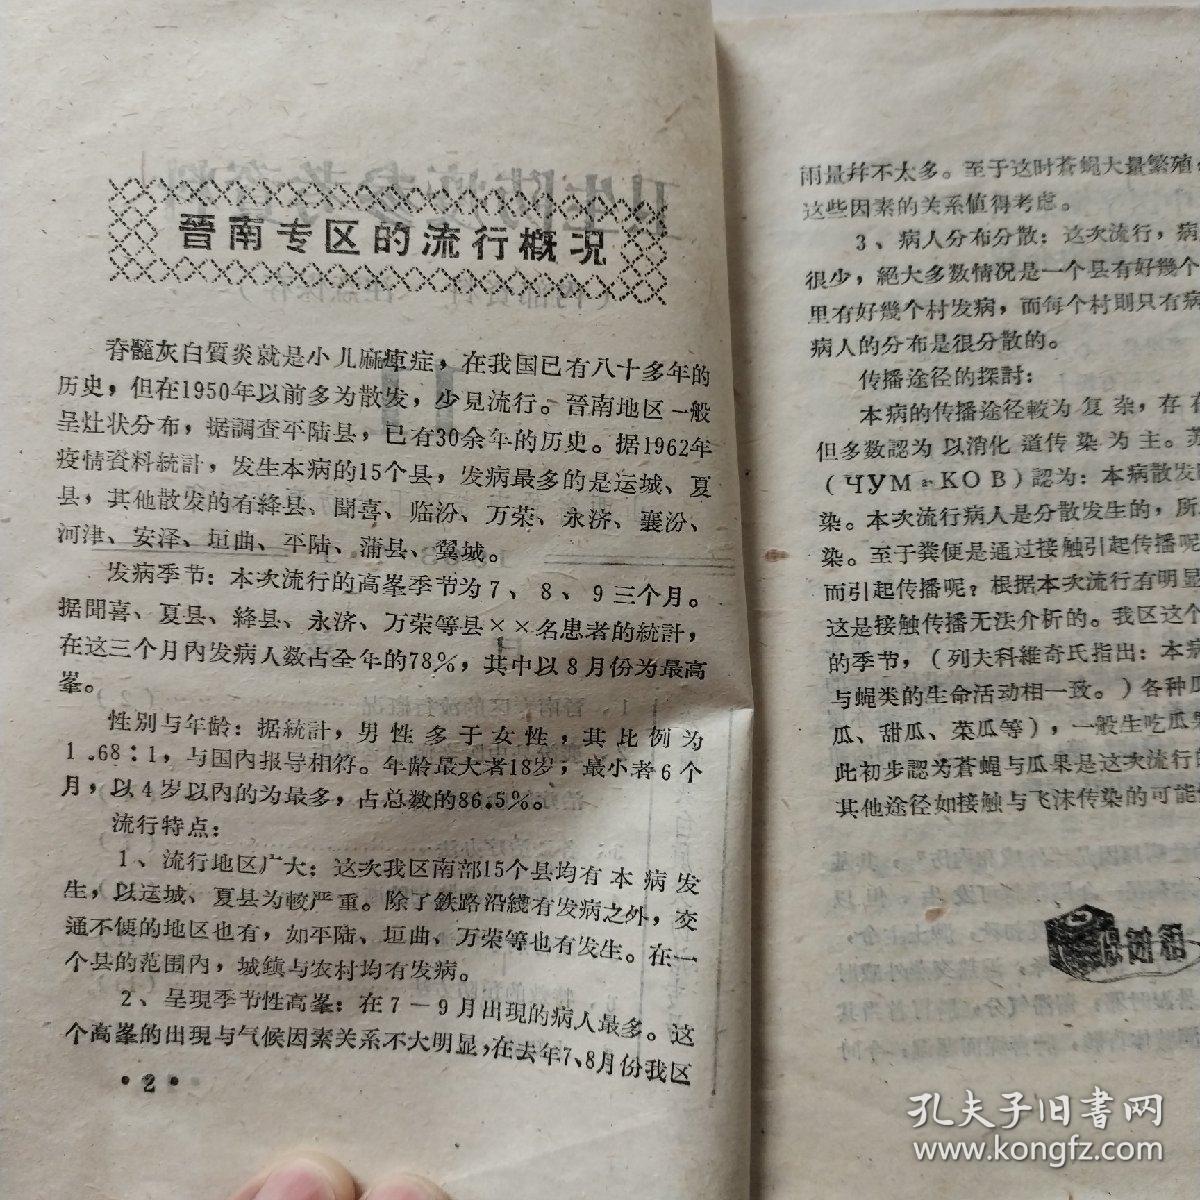 晉南专区的流行概况
脊髓灰白質炎就是小儿麻痺症，在我国已有八十多年的
历史，但在1950年以前多为散发，少见流行。晉南地区一般
呈灶状分布，据調查平陆县，已有30余年的历史。据1962年
疫情資料統計，发生本病的15个县，发病最多的是运城、夏
县，其他散发的有絳县、聞喜、临汾、万荣、永济、襄汾、
河津、安泽、垣曲、平陆、蒲县、翼城。
发病季节：本次流行的高峯季节为7、8、9三个月。
据聞喜、夏县、絳县、永济、万荣等县××名患者的統計，
在这三个月內发病人数占全年的78%，其中以8月份为最高
峯。
性別与年龄：据統計，男性多于女性，其比例为
1.68：1，与国内报导相符。年龄最大者18岁；最小者6个
月，以4岁以內的为最多，占总数的86.5%。
流行特点：
1、流行地区广大：这次我区南部15个县均有本病发
生，以运城、夏县为較严重。除了鉄路沿綫有发病之外，交
通不便的地区也有，如平陆、垣曲、万荣等也有发生。在一
个县的范围內，城鎮与农村均有发病。
2、呈現季节性高峯：在7－9月出現的病人最多。这
个高峯的出現与气候因素关系不大明显，在去年7、8月份我区
·2·
雨量幷不太多。至于这时蒼蝇大量繁殖
这些因素的关系値得考虑。
3、病人分布分散：这次流行，病
很少，絕大多数情况是一个县有好幾个
里有好幾个村发病，而每个村則只有病
病人的分布是很分散的。
传播途径的探討：
本病的传播途径較为复杂，存在
但多数認为以消化道传染为主。苏
（ЧУМаКОВ）認为：本病散发
染。本次流行病人是分散发生的，所
染。至于粪便是通过接触引起传播呢
而引起传播呢？根据本次流行有明显
这是接触传播无法介析的。我区这个
的季节，（列夫科維奇氏指出：本病
与蝇类的生命活动相一致。）各种瓜
瓜、甜瓜、菜瓜等），一般生吃瓜果
此初步認为蒼蝇与瓜果是这次流行的
其他途径如接触与飞沫传染的可能性
孔夫子旧书网
www.kongfz.com